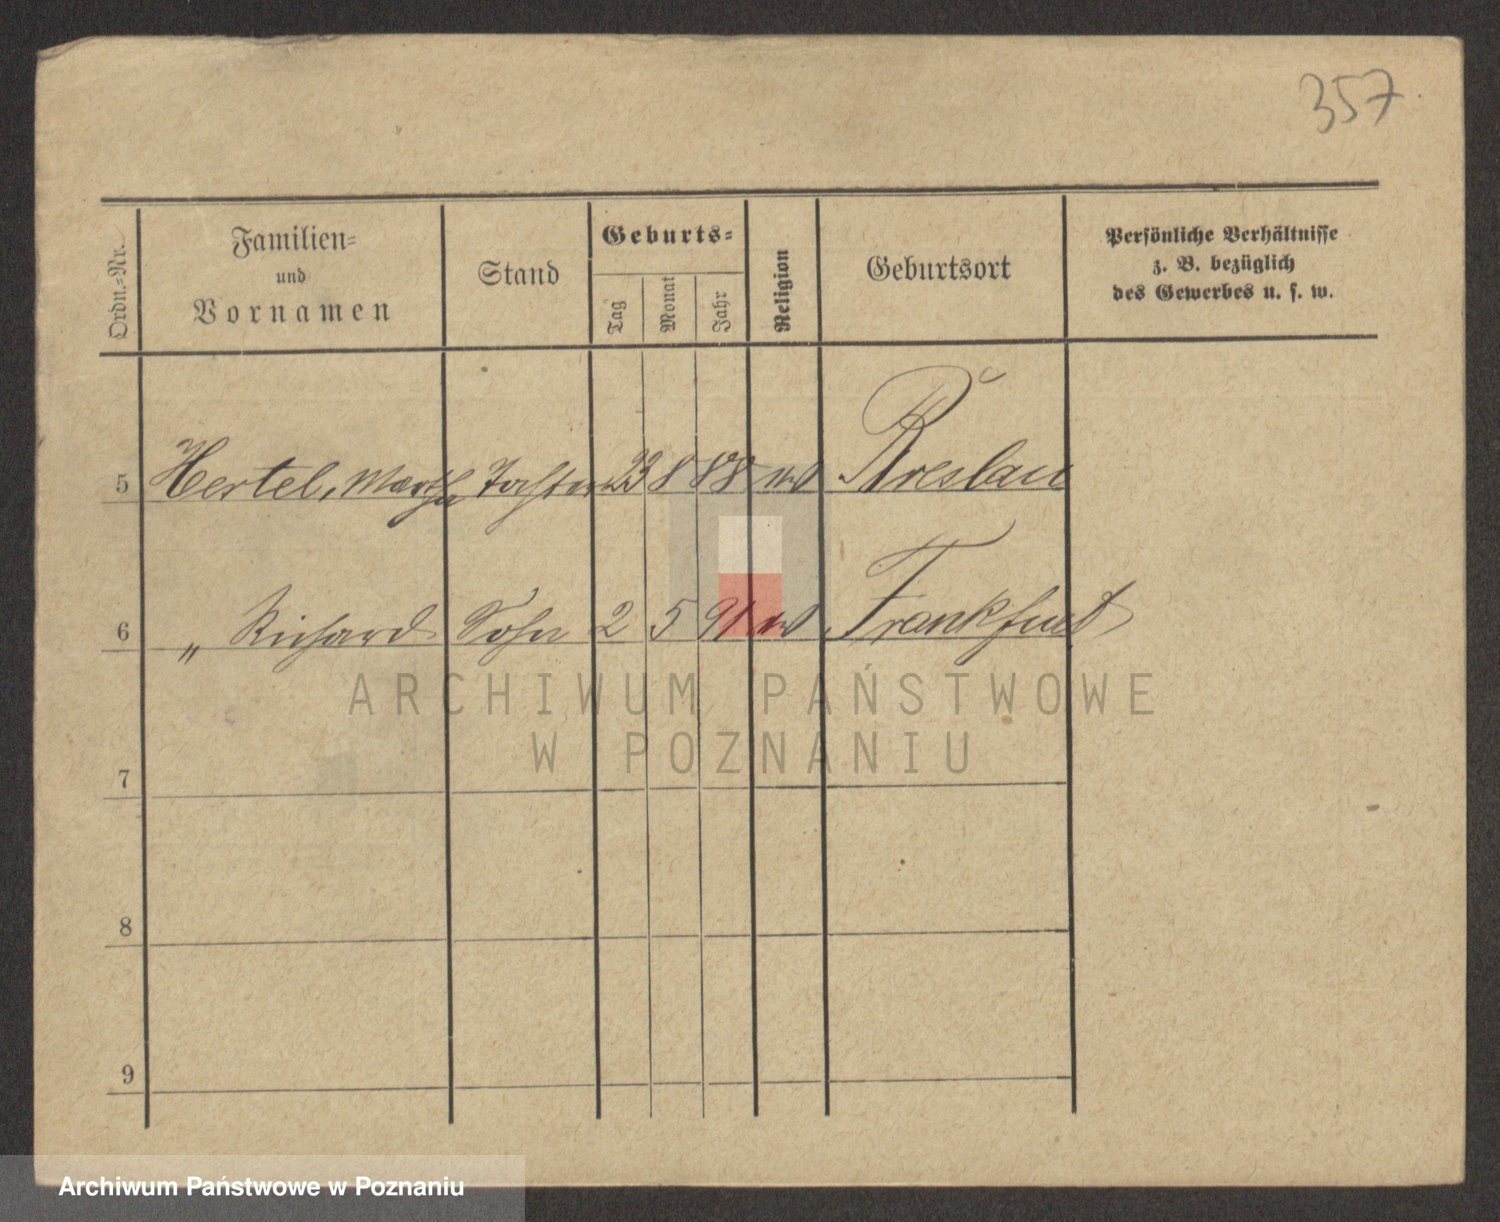 357
Ordn.-Nr.
Familien-
und
Vornamen
Stand
Geburts-
Tag
Monat
Jahr
Religion
Geburtsort
Persönliche Verhältnisse
z. B. bezüglich
des Gewerbes u. s. w.
5 Hertel, Martha Tochter 23 8 88 Breslau
6 „ Richard Sohn 2 5 91 Frankfurt
ARCHIWUM PAŃSTWOWE
W POZNANIU
7
8
9
Archiwum Państwowe w Poznaniu